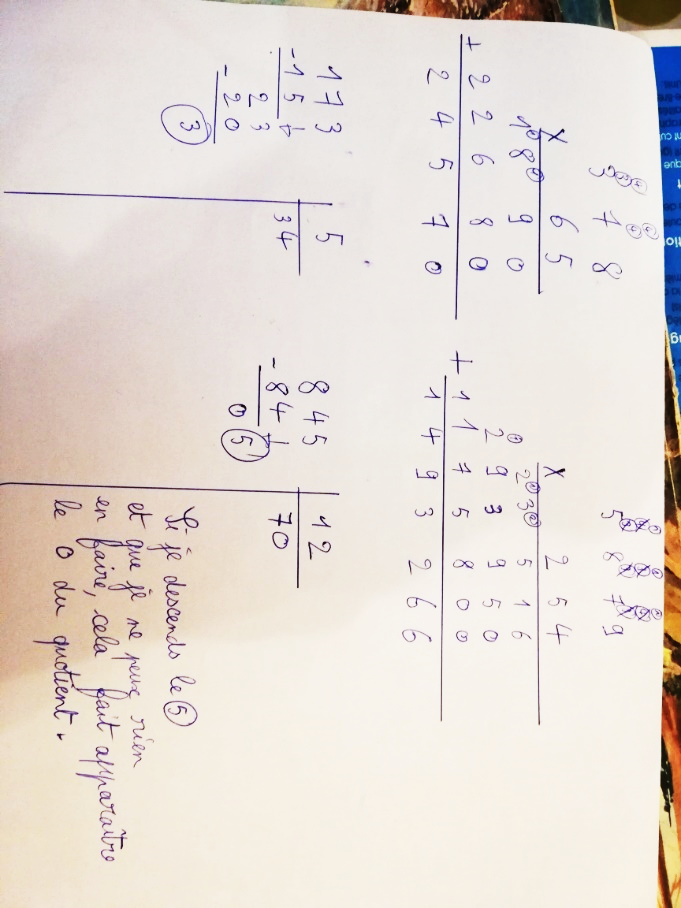 3 7 8
× 6 5
1 8 9 0
+ 2 2 6 8 0
2 4 5 7 0
5 8 7 9
× 2 5 4
2 3 5 1 6
2 9 3 9 5 0
+ 1 1 7 5 8 0 0
1 4 9 3 2 6 6
173 5
-15↓ 34
23
-20
3
845 12
-84↓ 70
05
Si je descends le 5
et que je ne peux rien
en faire, cela fait apparaître
le 0 du quotient.